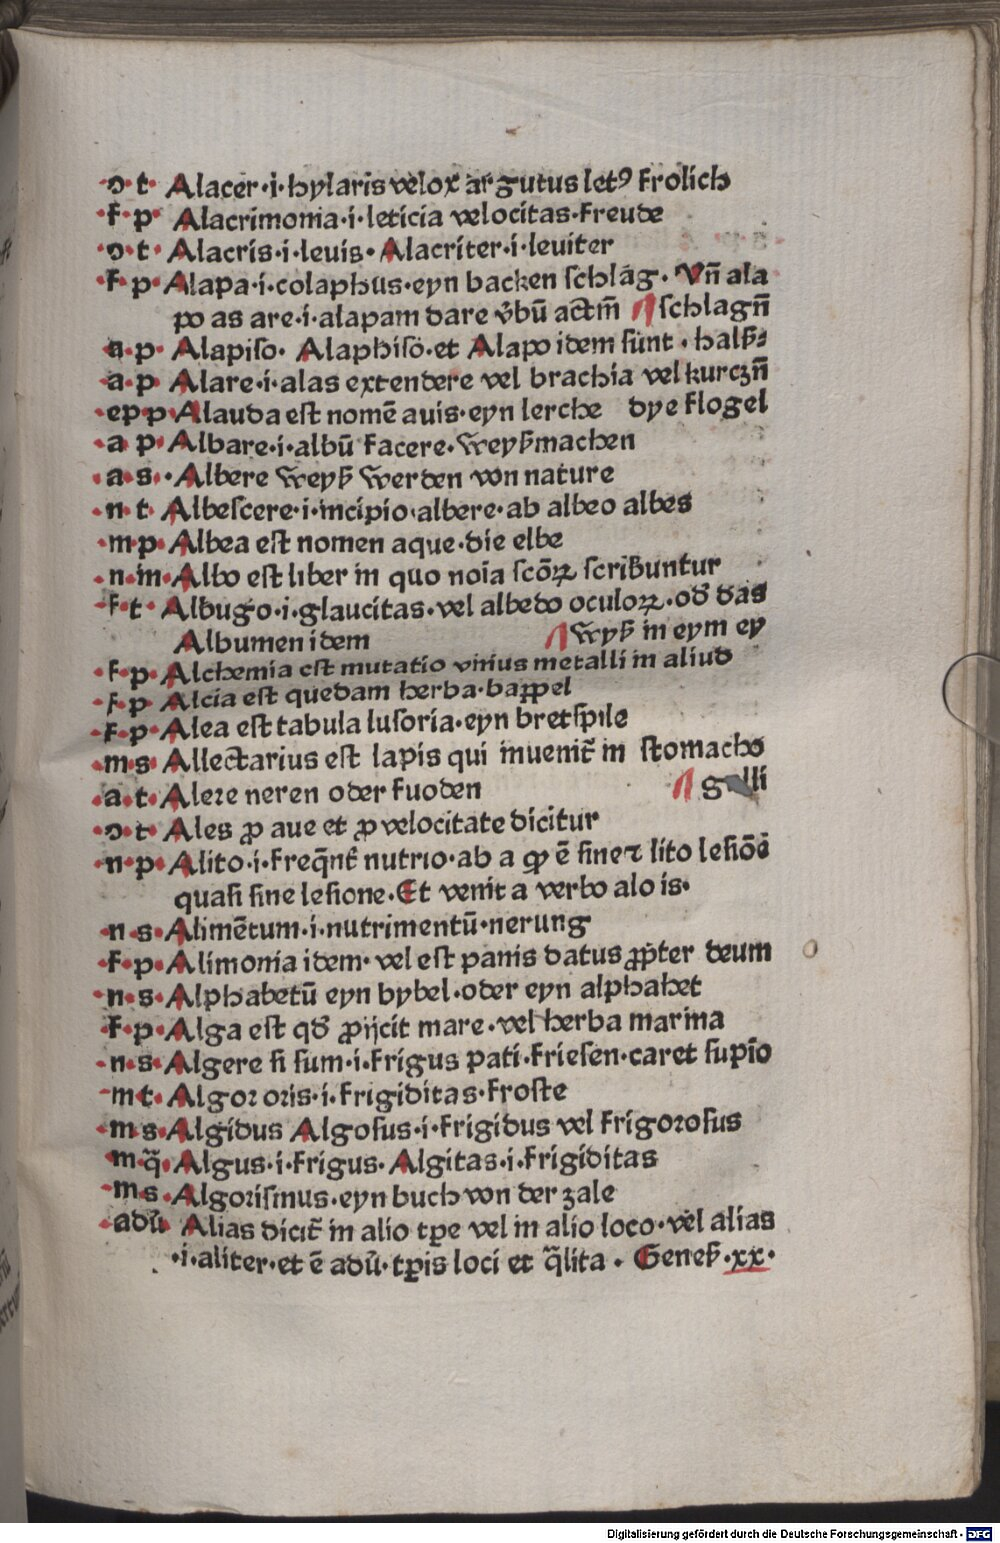 ·ↄ·t· Alacer·i·hylaris velox argutus letꝰ frolich
·f·p· Alacrimonia·i·leticia velocitas·freude
·ↄ·t· Alacris·i·leuis· Alacriter·i·leuiter
·f·p· Alapa·i·colaphus·eyn backen schlag· Vn̄ ala
po as are·i·alapam dare v̄bū actm̄ schlagn̄
·a·p· Alapiso· Alaphiso·et Alapo idem sunt·halsz⸗
·a·p· Alare·i·alas extendere vel brachia vel kurczn̄
·ep·p· Alauda est nomē auis·eyn lerche dye flogel
·a·p· Albare·i·albū facere·weyszmachen
·a·s· Albere weysz werden von nature
·n·t· Albescere·i·incipio albere·ab albeo albes
·m·p· Albea est nomen aque·die elbe
·n·m· Albo est liber in quo noīa scōꝝ scribuntur
·f·t· Albugo·i·glaucitas·vel albedo oculoꝝ·od̄ das
Albumen idem wysz in eym ey
·f·p· Alchemia est mutatio vnius metalli in aliud
·f·p· Alcia est quedam herba·bappel
·f·p· Alea est tabula lusoria·eyn bretspile
·m·s· Allectarius est lapis qui inuenit̄ in stomacho
·a·t· Alere neren oder fuoden galli
·ↄ·t· Ales ꝓ aue et ꝓ velocitate dicitur
·n·p· Alito·i·freq̄nt̄ nutrio·ab a qđ ē sine ⁊ lito lesiōē
quasi sine lesione·Et venit a verbo alo is·
·n·s· Alimētum·i·nutrimentū·nerung
·f·p· Alimonia idem·vel est panis datus ꝓpter deum
·n·s· Alphabetū eyn bybel·oder eyn alphahet
·f·p· Alga est qđ ꝓijcit mare·vel herba marina
·n·s· Algere si sum·i·frigus pati·friesen·caret supīo
·m·t· Algor oris·i·frigiditas·froste
·m·s· Algidus Algosus·i·frigidus vel frigorosus
·m·q̄· Algus·i·frigus· Algitas·i·frigiditas
·m·s· Algorismus·eyn buch von der zale
·adū· Alias dicit̄ in alio tꝑe vel in alio loco·vel alias
·i·aliter·et ē adū·tꝑis loci et q̄lita·Genesz·xx·
Digitalisierung gefördert durch die Deutsche Forschungsgemeinschaft - DFG